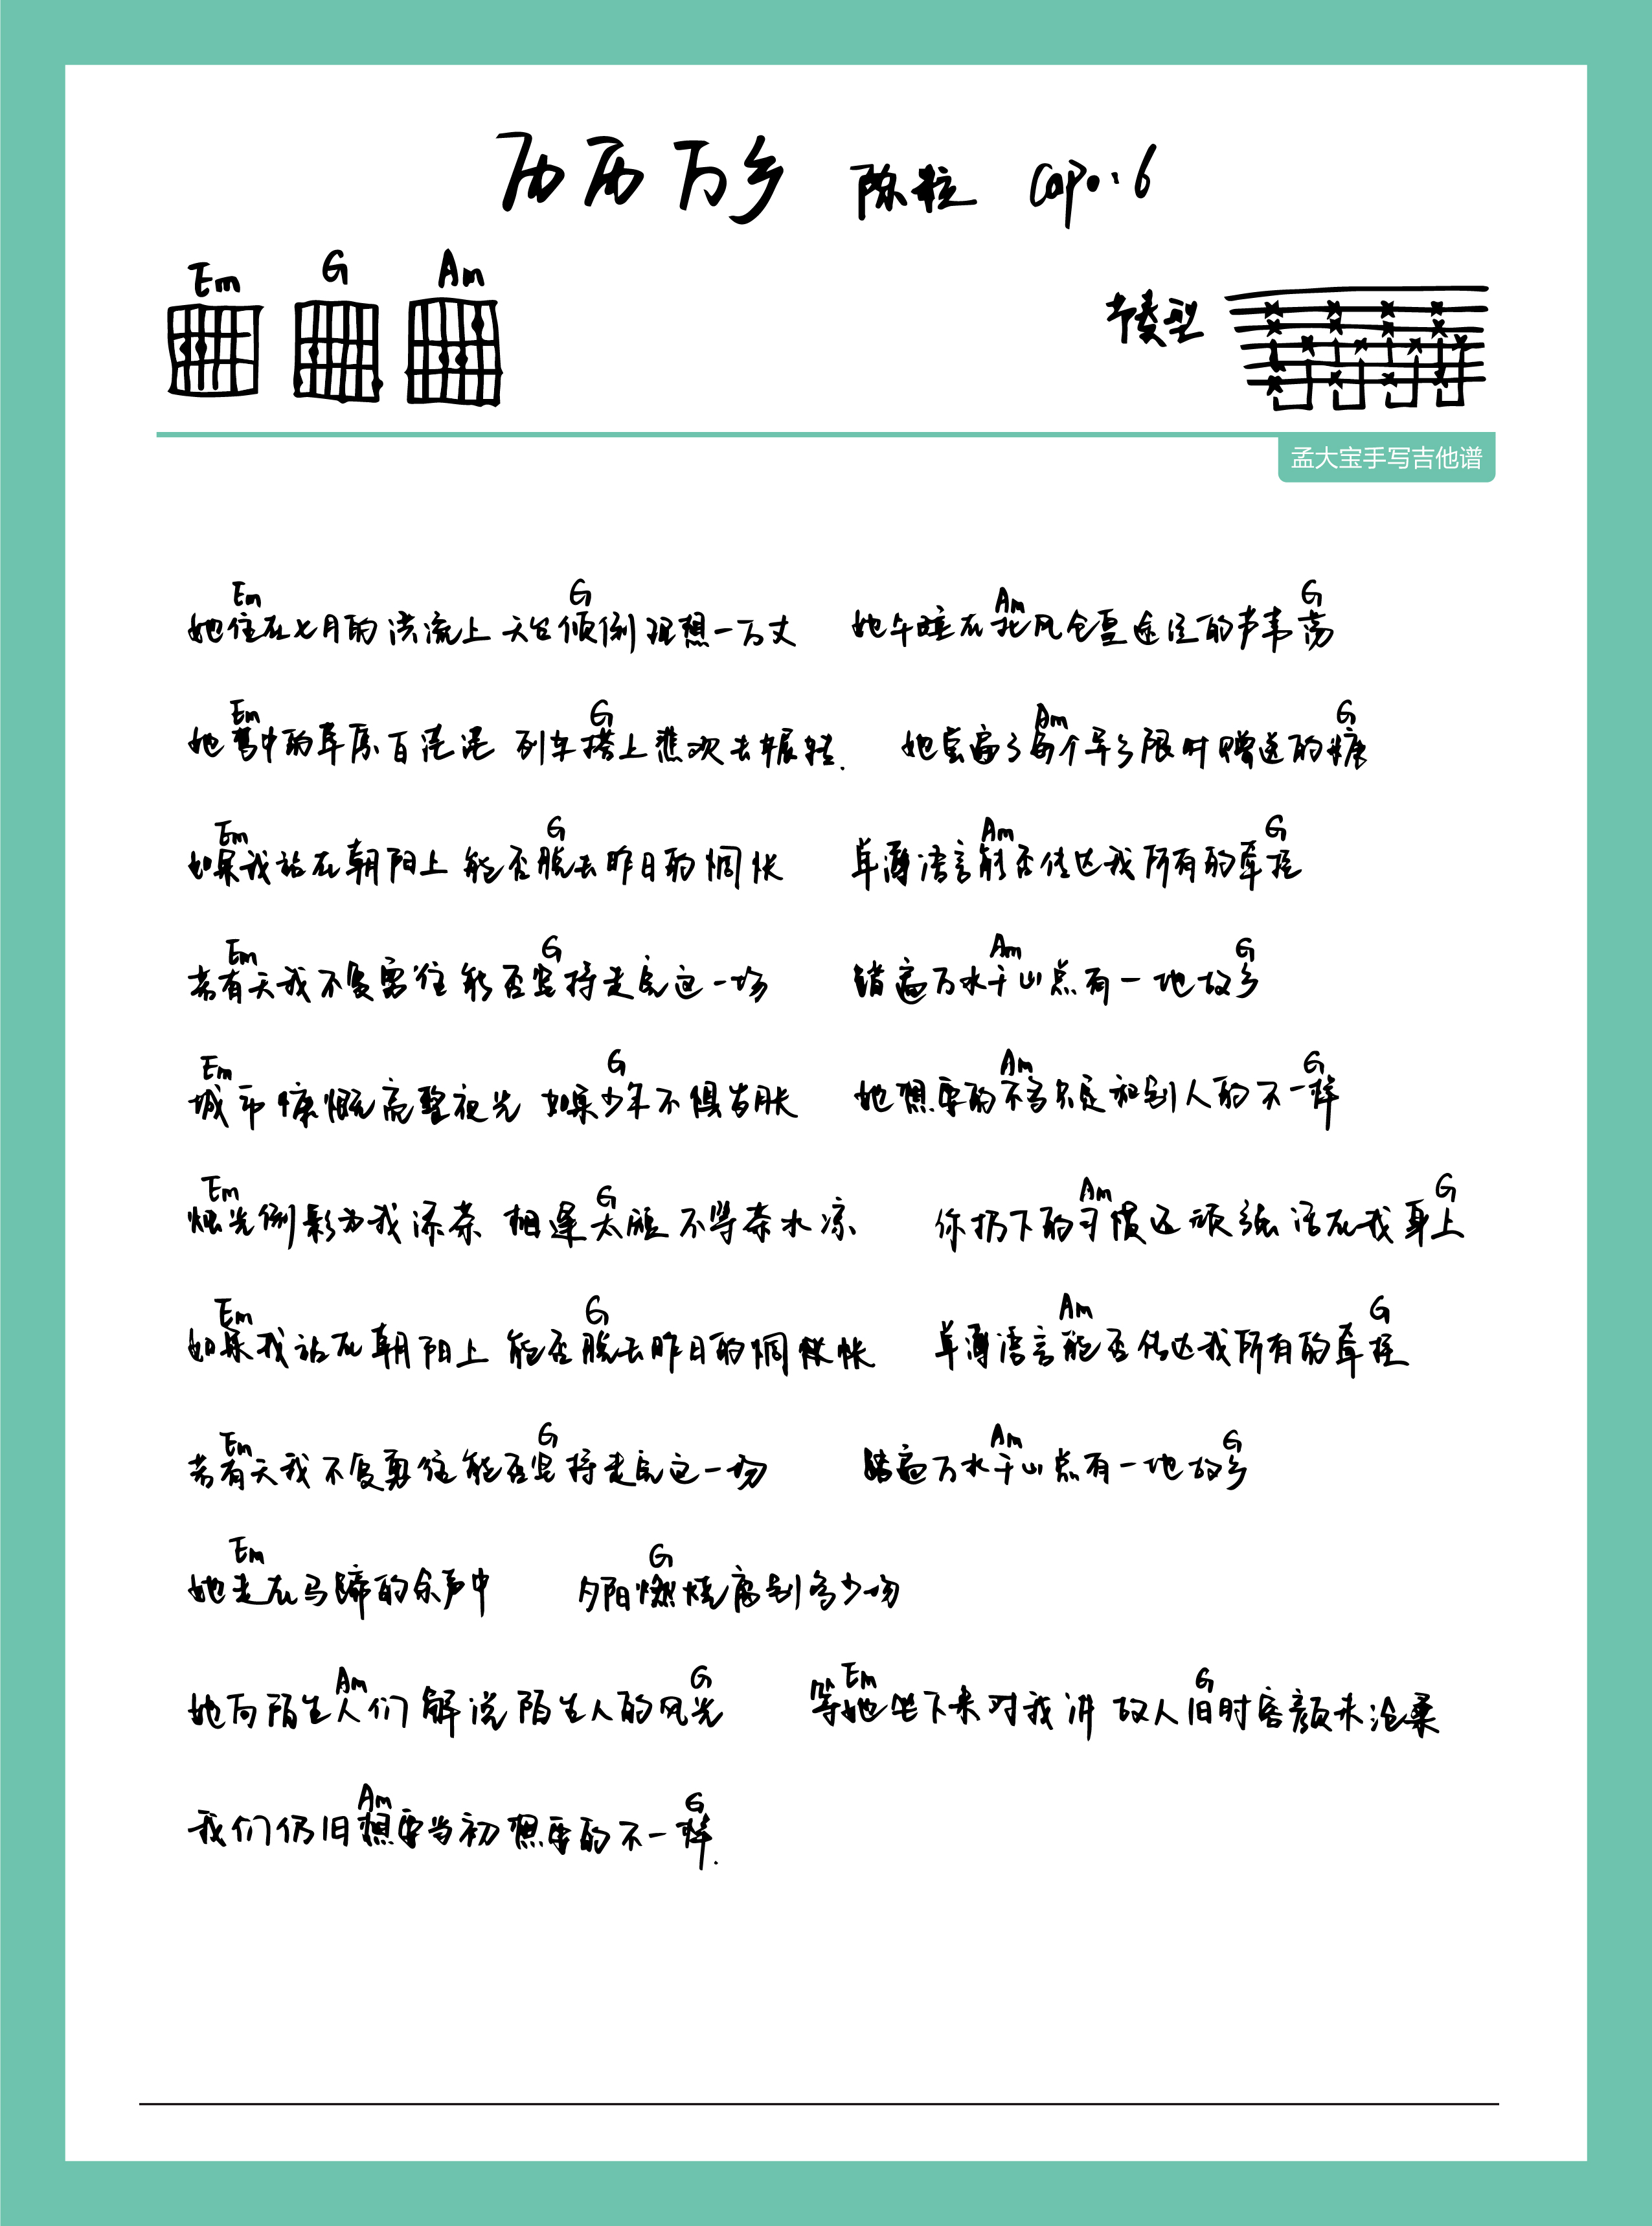 历历万乡 陈粒 Capo:6
Em G Am
节奏型
孟大宝手写吉他谱
Em G Am G
她住在七月的洪流上 天台倾倒理想一万丈 她午睡在北风仓皇途经的芦苇荡
Em G Am G
她梦中的草原白茫茫 列车搭上悲欢去辗转. 她尝遍了每个异乡限时赠送的糖
Em G Am G
如果我站在朝阳上 能否脱去昨日的惆怅 单薄语言能否传达我所有的牵挂
Em G Am G
若有天我不复勇往 能否坚持走完这一场 踏遍万水千山总有一地故乡
Em G Am G
城市慷慨亮整夜光 如果少年不惧岁月长 她想要的不多只是和别人的不一样
Em G Am G
烛光倒影为我添茶 相逢太短不等茶水凉 你扔下的习惯还顽强活在我身上
Em G Am G
如果我站在朝阳上 能否脱去昨日的惆怅 单薄语言能否传达我所有的牵挂
Em G Am G
若有天我不复勇往 能否坚持走完这一场 踏遍万水千山总有一地故乡
Em G
她走在马蹄的余声中 夕阳燃烧离别多少场
Am G Em G
她向陌生人们解说陌生人的风光 等她坐下来对我讲 故人旧时容颜未沧桑
Am G
我们仍旧想要当初想要的不一样.